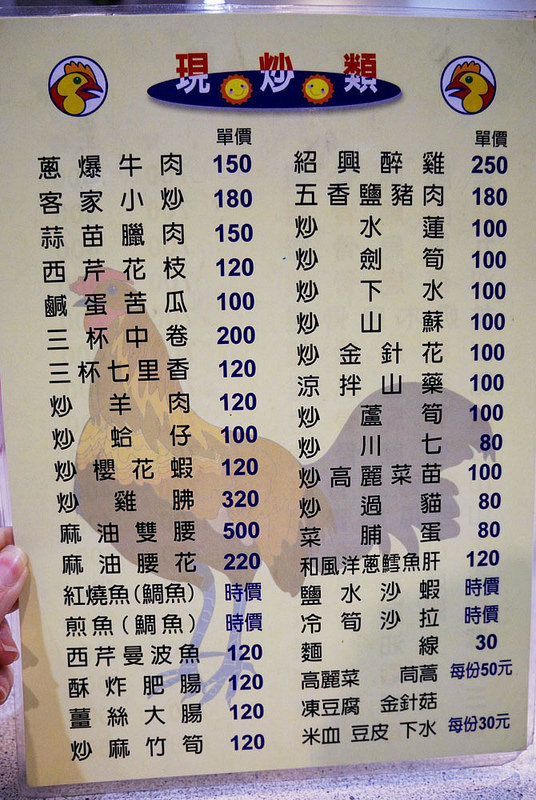 現炒類
單價
蔥爆牛肉 150
客家小炒 180
蒜苗臘肉 150
西芹花枝 120
鹹蛋苦瓜 100
三杯中卷 200
三杯七里香 120
炒羊肉 120
炒蛤仔 100
炒櫻花蝦 120
炒雞胇 320
麻油雙腰 500
麻油腰花 220
紅燒魚(鯛魚) 時價
煎魚(鯛魚) 時價
西芹曼波魚 120
酥炸肥腸 120
薑絲大腸 120
炒麻竹筍 120
單價
紹興醉雞 250
五香鹽豬肉 180
炒水蓮 100
炒劍筍 100
炒下水 100
炒山蘇 100
炒金針花 100
涼拌山藥 100
炒蘆筍 100
炒川七 80
炒高麗菜苗 100
炒過貓 80
菜脯蛋 80
和風洋蔥鱈魚肝 120
鹽水沙蝦 時價
冷筍沙拉 時價
麵線 30
高麗菜 茼蒿 每份50元
凍豆腐 金針菇
米血 豆皮 下水 每份30元